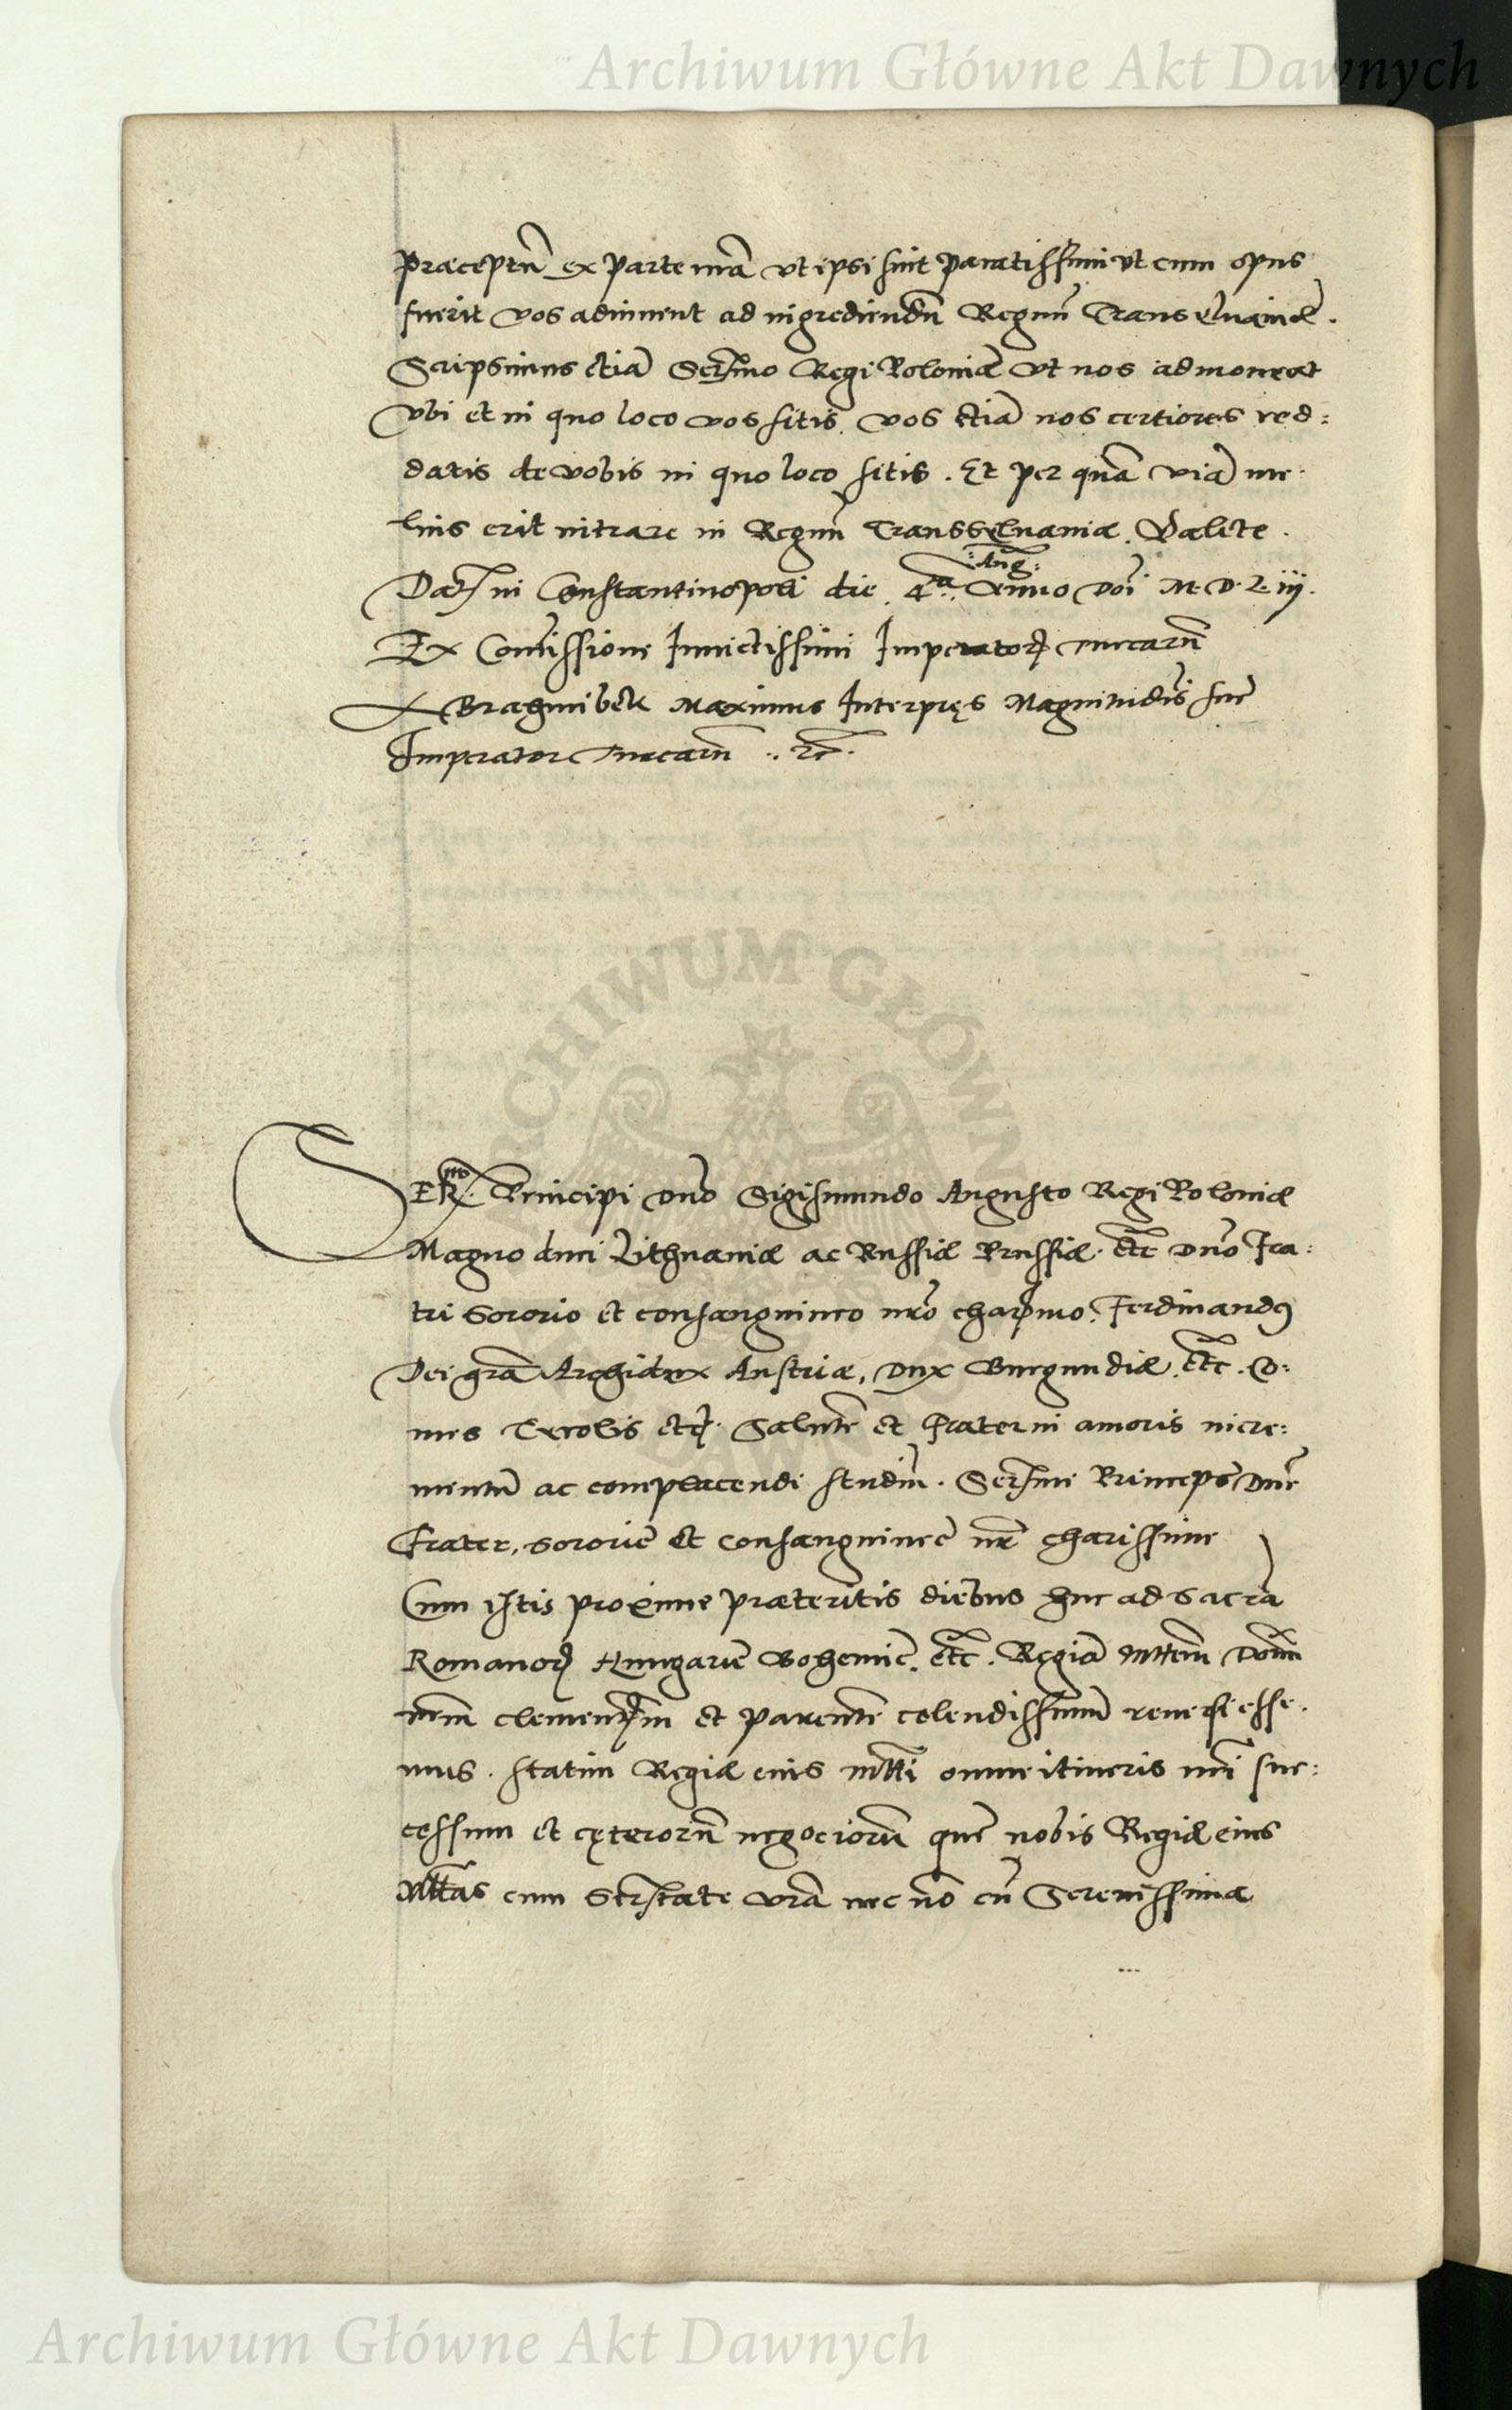 Archiwum Główne Akt Dawnych
præceptũ ex parte nrã vt ipsi sint paratissimi vt cum opus
fuerit vos adiuuent ad ingrediendũ Regnũ Transyluaniæ.
Scripsimus etiã Serſmo Regi Poloniæ vt nos admoneat
vbi et in quo loco vos sitis. vos etiã nos certiores red:
datis de vobis in quo loco sitis. Et per quã viã me:
lius erit intrare in Regnũ Transsyluaniæ. Valete.
:Aug:
Datſ in Constantinopoli die 4ta. Anno Doi M.D.L.iij.
Ex Comissione Inuictissimi Imperatorꝭ Turcarũ
Bragmibek Maximus Interpręs Magnitudis suę
Imperator Turcarũ .. rc.
ARCHIWUM GŁÓWNE
SERmo. Principi Dno Sigismundo Augusto Regi Poloniæ
Magno duci Lithuaniæ ac Russiæ Prussiæ. Etc Dno Fra:
tri Sororio et consanguineo nro charſmo. Ferdinandꝯ
Dei grã Archidux Austriæ, Dux Burgundiæ. Etc. Co:
mes Tyrolis etc. Salutẽ et fraterni amoris incre:
mentũ ac complacendi studiũ. Serſme Princeps Dne
Frater, sororie et consanguinee nr charissime
Cum istis proxime præteritis diebus huc ad sacrã
Romanorꝭ Hungarię Bohemię. Etc. Regiã Mttem Dom
nrm clementſm et parentẽ colendissimũ reuersi esse:
mus. statim Regiæ eius Mtti omne itineris nri suc:
cessum et cęterorũ negociorũ quę nobis Regiæ eius
Mttas cum Serſtate vrã nec nõ cũ Serenissima
Archiwum Główne Akt Dawnych